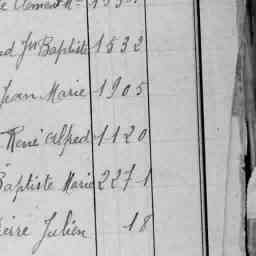 Clément M
nd Jn Baptiste 1532
Jean Marie 1905
René Alfred 1120
Baptiste Marie 2271
ierre Julien 18